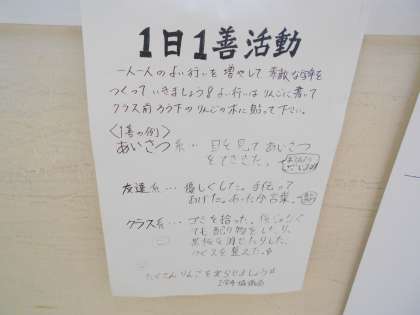 1日1善活動
一人一人のよい行いを増やして素敵な学年を
つくっていきましょう!!よい行いはりんごに書いて
クラス前ろう下のりんごの木に貼って下さい。
〈1善の例〉
あいさつ系… 目を見てあいさつ
をできた。
友達系… 優しくした。手伝って
あげた。あったか言葉。
クラス系… ゴミを拾った。係じゃなく
ても配り物をしたり、
黒板を消したりした。
つくえを整えた。
たくさんりんごを実らせましょう!!